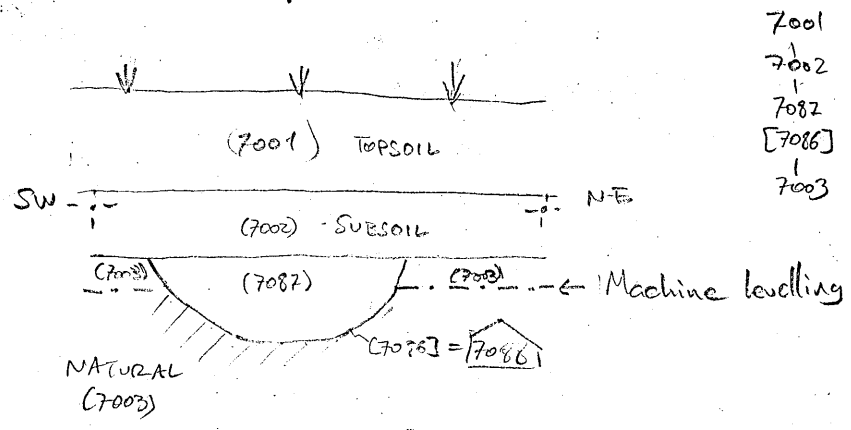 7001
7002
7087
[7086]
7003
(7001) TOPSOIL
SW
N-E
(7002) - SUBSOIL
(7003)
(7087)
(7003)
Machine levelling
[7086] = 7086
NATURAL
(7003)